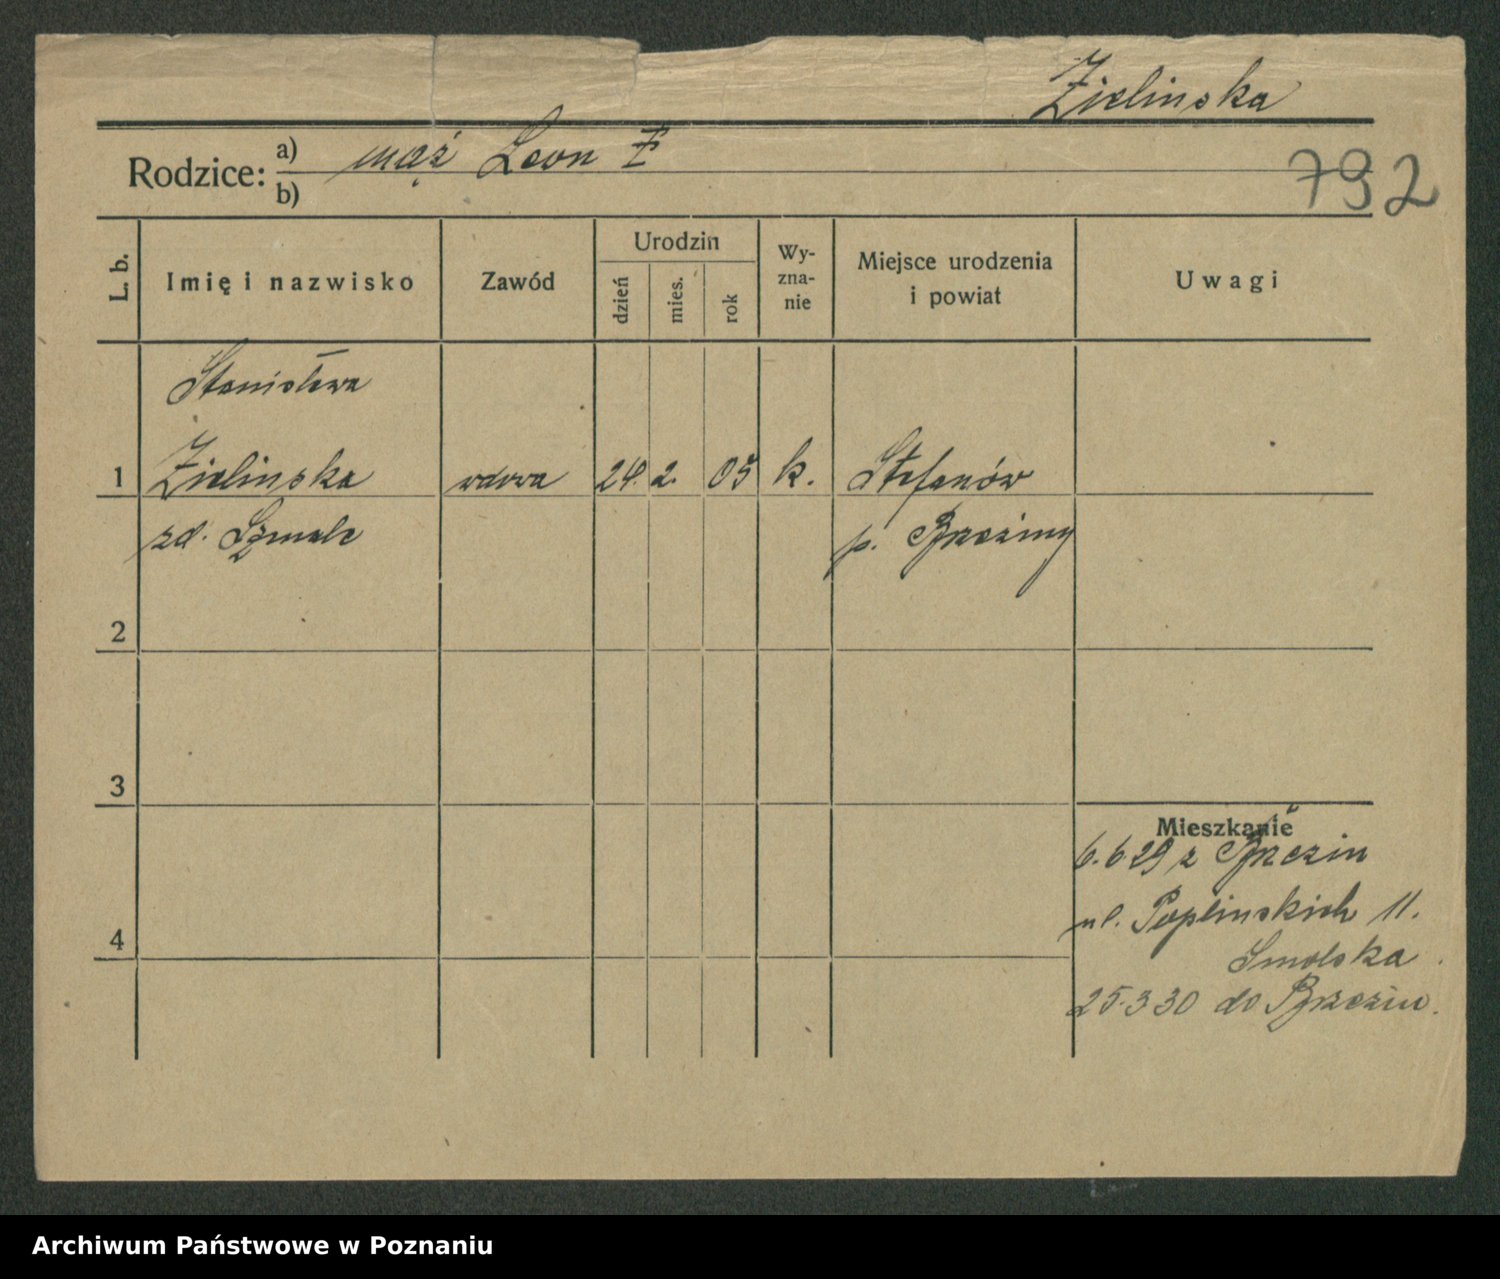 Zielinska
Rodzice: a) mąż Leon Z
b)
792
L. b.
Imię i nazwisko
Zawód
Urodzin
dzień
mies.
rok
Wy-
zna-
nie
Miejsce urodzenia
i powiat
Uwagi
Stanisława
1 Zielinska wdowa 24. 2. 05 k. Stefanów
zd. Szmalc p. Brzeziny
2
3
Mieszkanie
6.6 29 z Brzezin
ul. Poplinskich 11.
4
Smolska
25.3 30 do Brzezin.
Archiwum Państwowe w Poznaniu